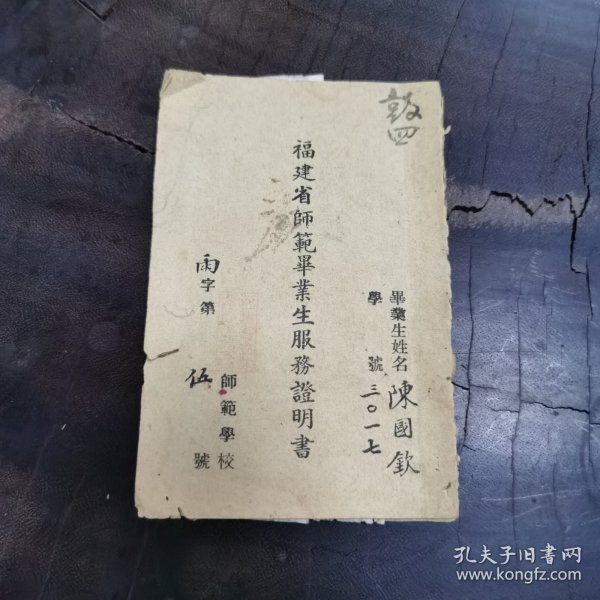 畢業生姓名 陳國欽
學號 三〇一七
福建省師範畢業生服務證明書
師範學校
字第 伍 號
孔夫子旧书网
www.kongfz.com